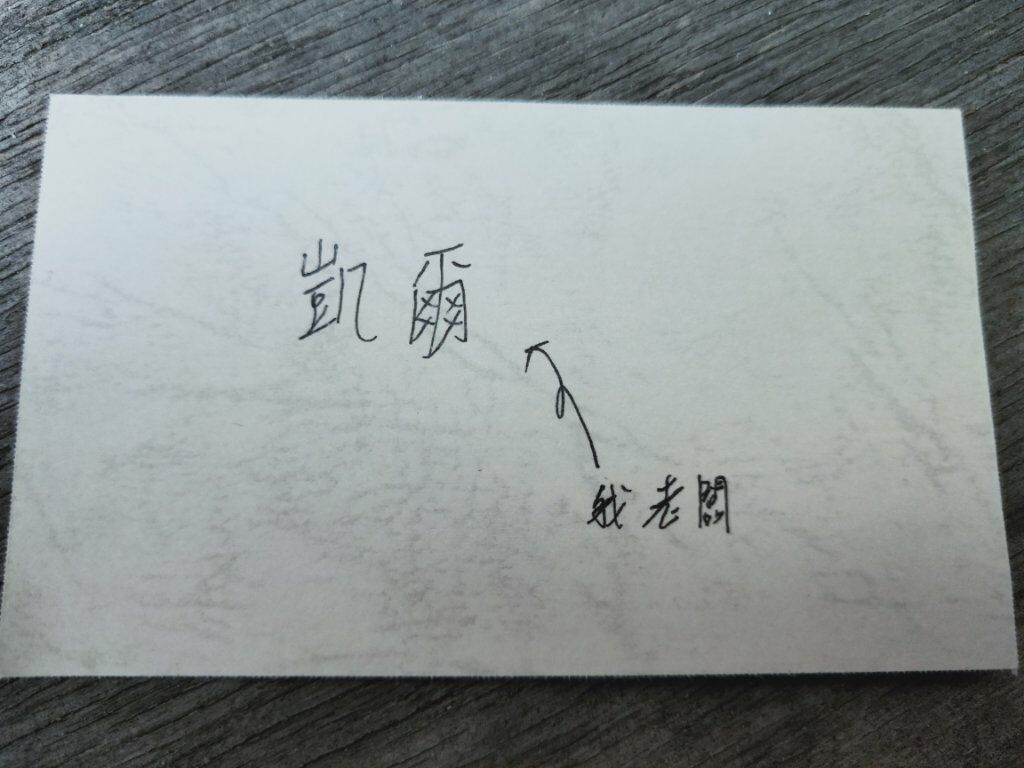 凱爾
我老闆